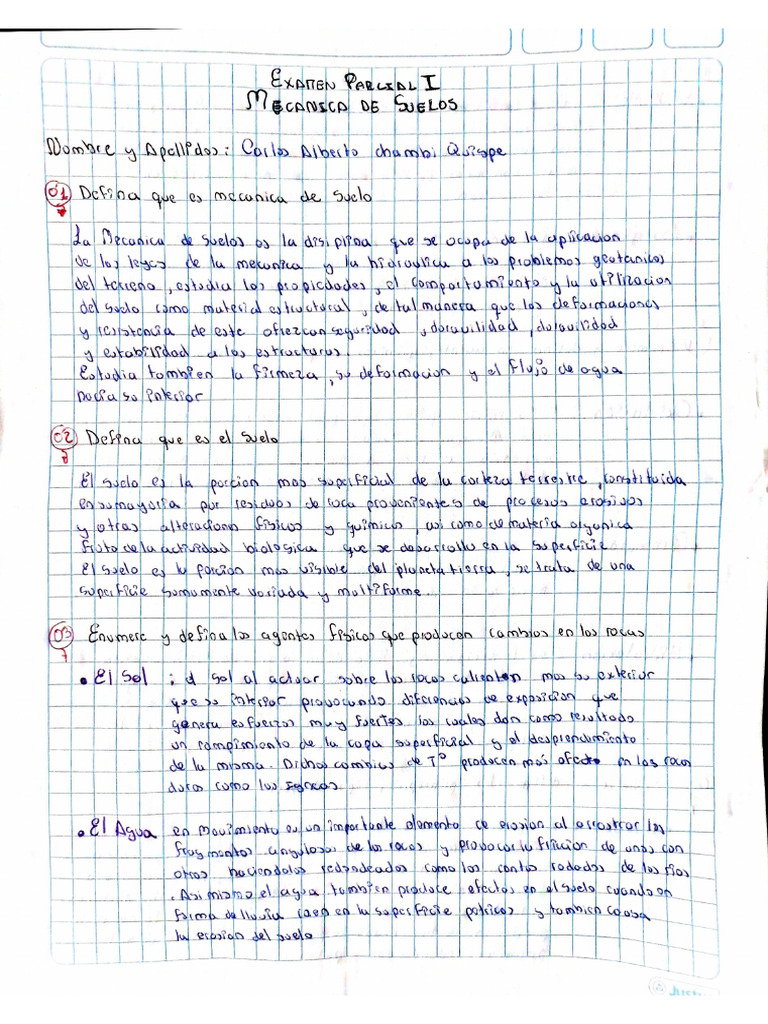 Examen Parcial I
Mecanica de Suelos
Nombre y Apellidos: Carlos Alberto Chambi Quispe
01 Defina que es mecanica de suelo
La Mecanica de suelos es la disiplina que se ocupa de la aplicacion
de las leyes de la mecanica y la hidraulica a los problemas geotanicos
del terreno, estudia las propiedades, el comportamiento y la utilizacion
del suelo como material estructural, de tal manera que las deformaciones
y resistencia de este ofrezcan seguridad, durabilidad, durabilidad
y estabilidad a las estructuras.
Estudia tambien la firmeza, su deformacion y el flujo de agua
hacia su interior
02 Defina que es el suelo
El suelo es la porcion mas superficial de la corteza terrestre, constituida
en su mayoria por residuos de roca provenientes de procesos erosivos
y otras alteraciones fisicas y quimicas, asi como de materia organica
fruto de la actividad biologica que se desarrolla en la superficie
El suelo es la porcion mas visible del planeta tierra, se trata de una
superficie sumamente variada y multiforme.
03 Enumere y defina los agentes fisicos que producen cambios en las rocas
• El Sol ; el sol al actuar sobre las rocas calientan mas su exterior
que su interior provocando diferencias de exposicion que
genera esfuerzos muy fuertes los cuales dan como resultado
un rompimiento de la capa superficial y el desprendimiento
de la misma. Dichos cambios de Tº producen mas efecto en las rocas
duras como las igneas
• El Agua en movimiento es un importante elemento de erosion al arrastrar los
fragmentos angulosos de las rocas y provocar la friccion de unas con
otras haciendolas redondeadas como los cantos rodados de los rios
. Asi mismo el agua tambien produce efectos en el suelo cuando en
forma de lluvia caen en la superficie petricos y tambien causa
la erosion del suelo